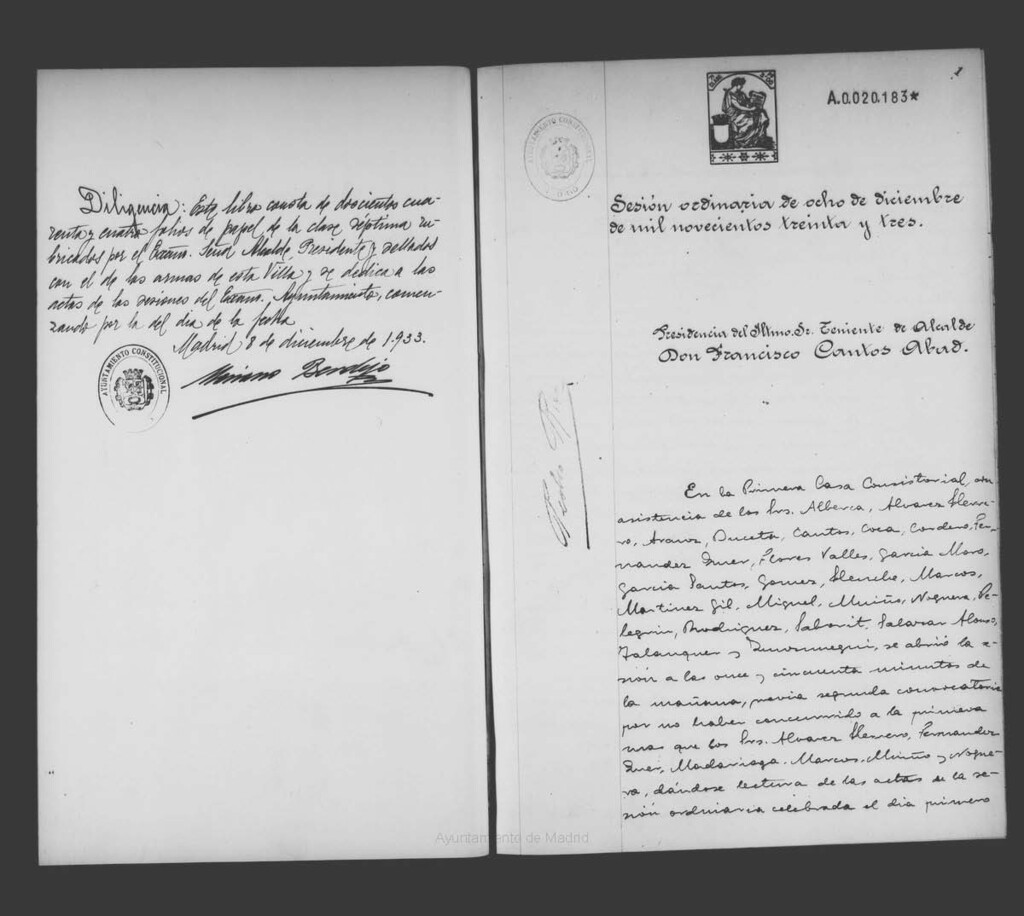 Diligencia: Este libro consta de doscientos cua-
renta y cuatro folios de papel de la clase séptima ru-
bricados por el Excmo. Señor Alcalde, Presidente y sellados
con el de las armas de esta Villa y se dedica a las
actas de las sesiones del Excmo. Ayuntamiento, comen-
zando por la del dia de la fecha
Madrid 8 de diciembre de 1.933.
AYUNTAMIENTO CONSTITUCIONAL
Mariano
1
A.0.020.183*
AYUNTAMIENTO CONSTITUCIONAL
Sesión ordinaria de ocho de diciembre
de mil novecientos treinta y tres.
Presidencia del Iltmo. Sr. Teniente de Alcalde
Don Francisco Cantos Abad.
En la Primera Casa Consistorial, con
asistencia de los Srs. Alberca, Alvarez Herre-
ro, Arauz, Buceta, Cantos, Coca, Cordero, Fer-
nandez Quer, Flores Valles, Garcia Moro,
Garcia Santos, Gomez, Henche, Marcos,
Martinez Gil, Miguel, Muiño, Noguera, Pe-
legrin, Rodriguez, Saborit, Salazar Alonso,
Talanquer y Zunzunegui, se abrió la se-
sión a las once y cincuenta minutos de
la mañana, previa segunda convocatoria
por no haber concurrido a la primera
mas que los Srs. Alvarez Herrero, Fernandez
Quer, Madariaga, Marcos, Muiño y Nogue-
ra, dándose lectura de las actas de la se-
sión ordinaria celebrada el dia primero
Ayuntamiento de Madrid